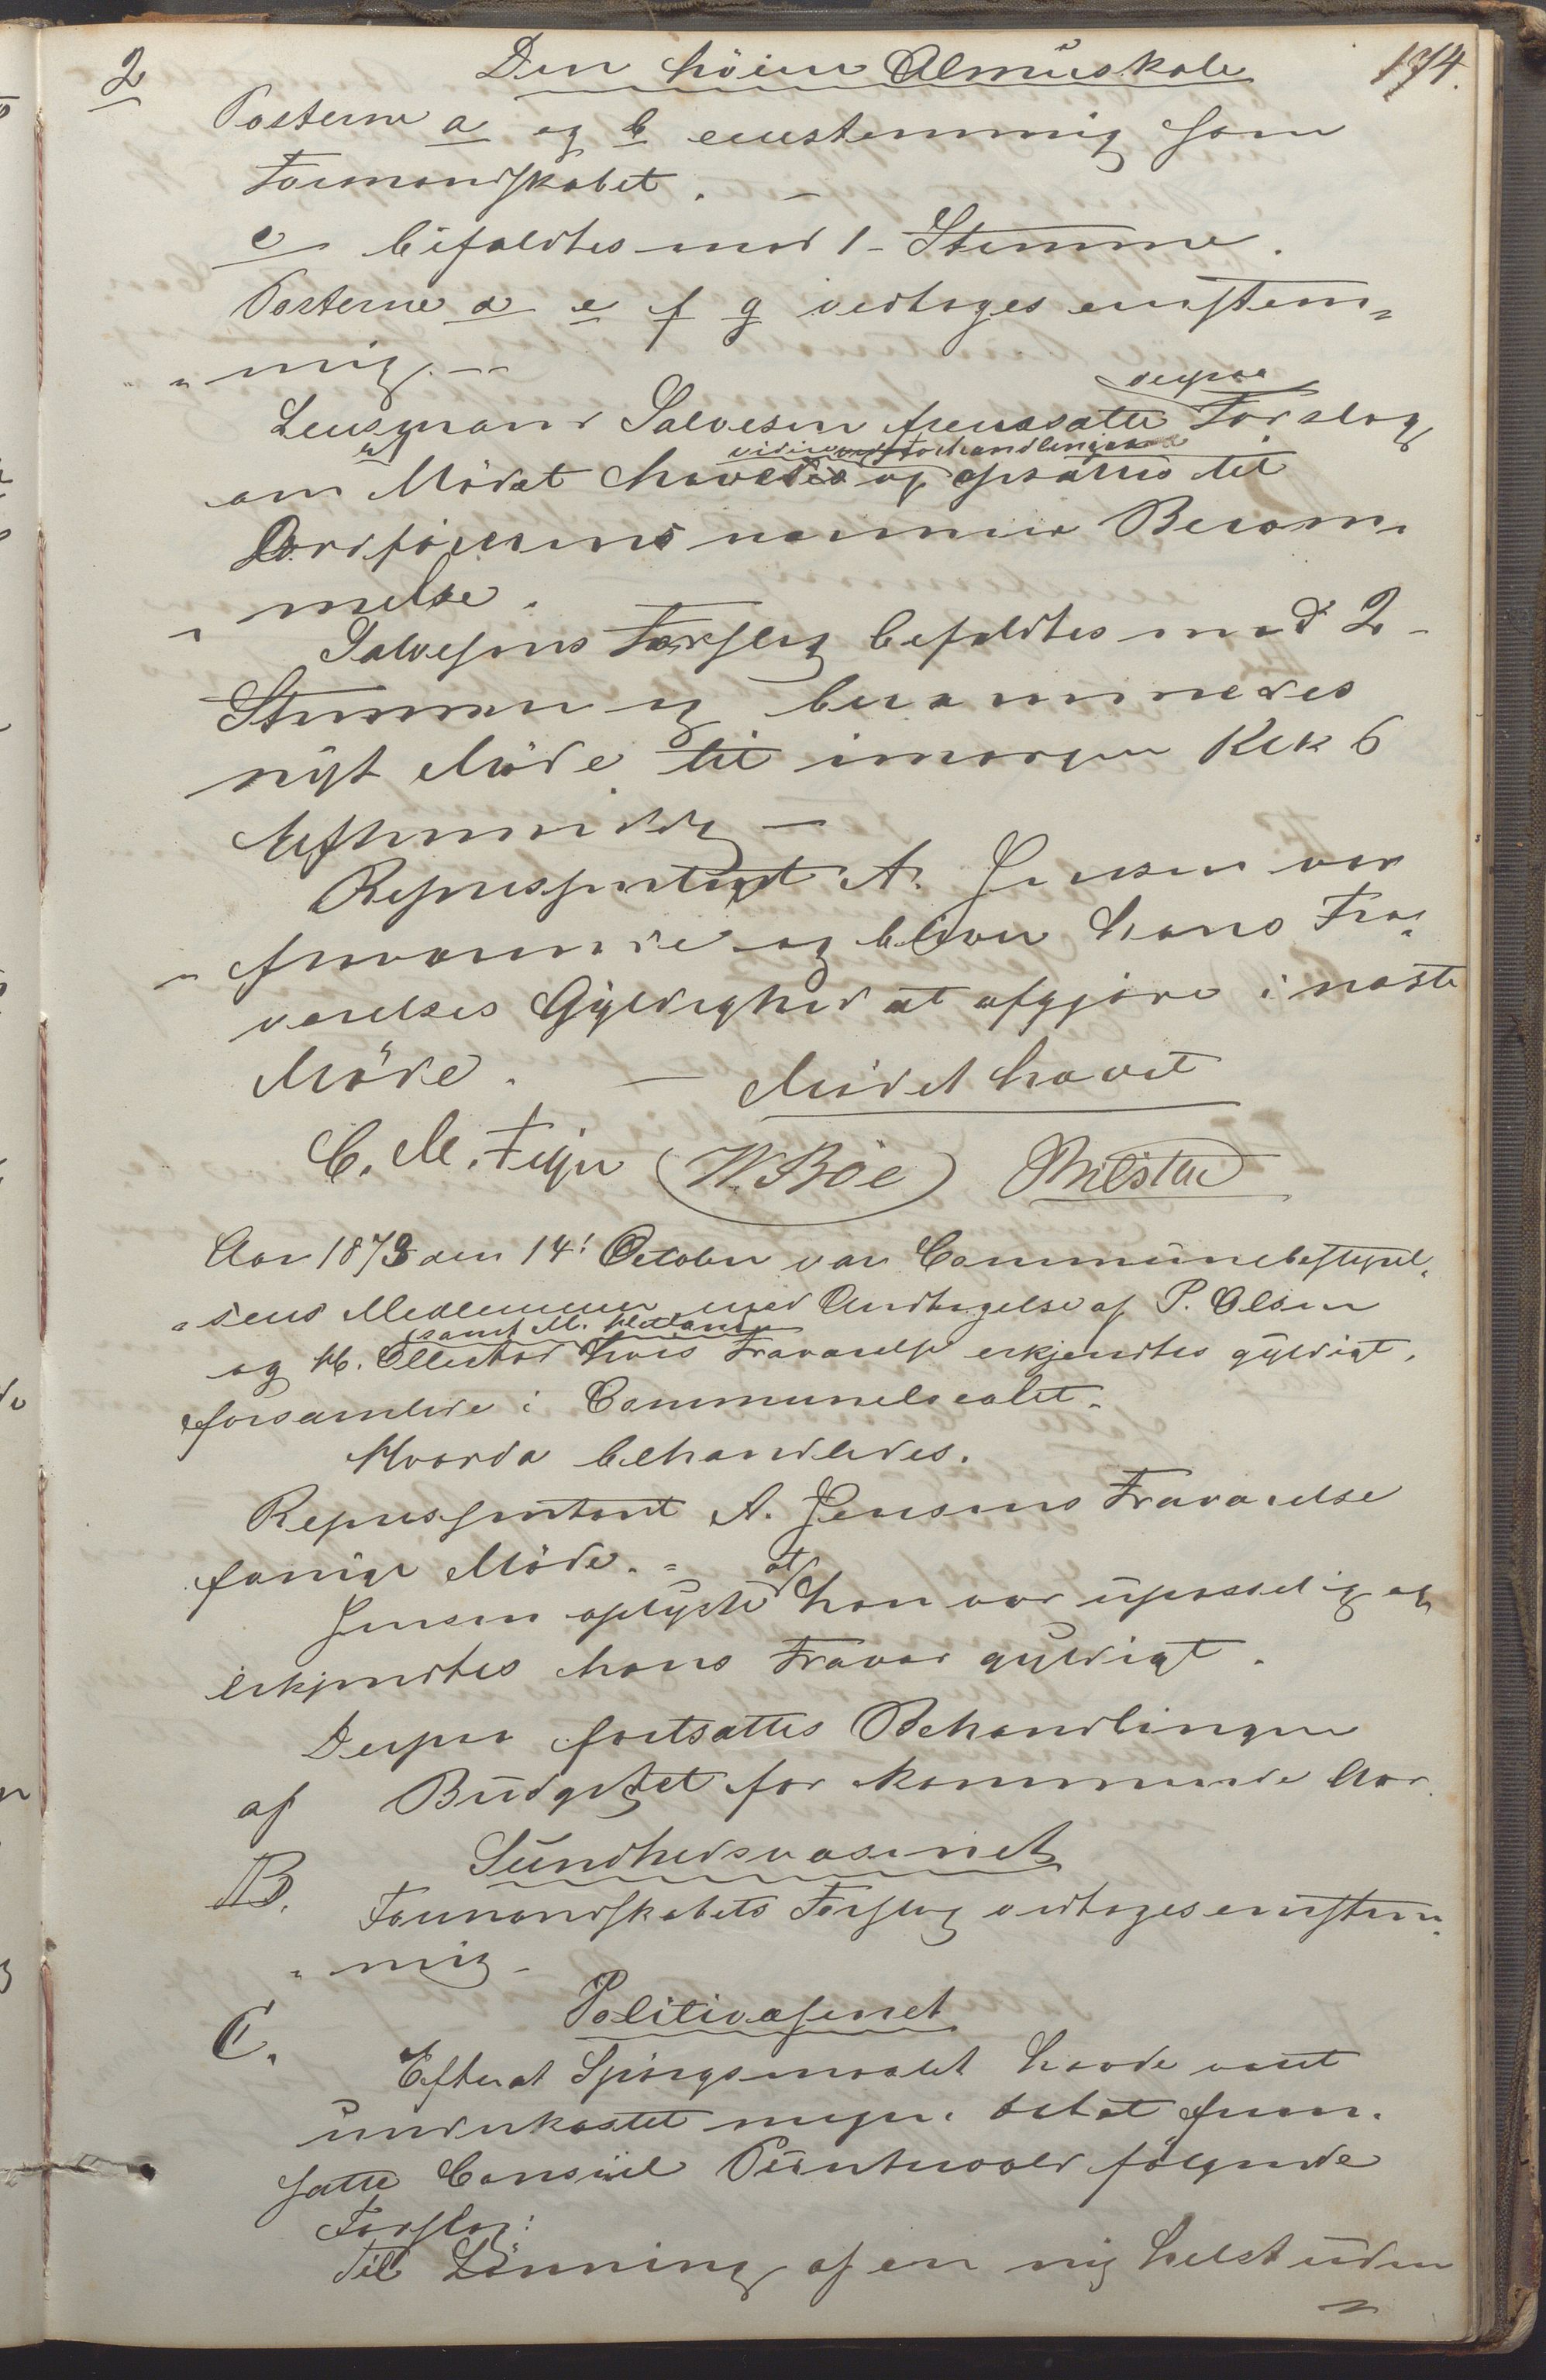 2 Den höiere Almueskole 174.
Posterne a og b eenstemmig som
Formandskabet. —
c bifaldtes mod 1 Stemme.
Posterne d e f g vedtoges eenstem-
"mig. —
derpaa
Lensmand Salvesen fremsatte Forslag
at videre Forhandlinger
om Mödet hævedes og opsattes til
Ordförerens nærmere Beram-
"melse.
Salvesens Forslag bifaldtes mod 2
Stemmer og berammedes
nyt Möde til imorgen Klk 6
Eftermiddag —
Repræsentant A. Jensen var
fraværende og bliver hans Fra-
værelses Gyldighed at afgjöre i næste
Möde. — Mödet hævet
C. M. Feyer W. Böe Milstad
Aar 1873 den 14' October var Communebestyrel-
"sens Medlemmer med Undtagelse af P. Olsen
samt M. Hetland
og H. Ollestad hvis Fraværelse erkjendtes gyldigt,
forsamlede i Communelocalet.
Hvorda behandledes.
Repræsentant A. Jensens Fraværelse
forrige Möde. =
Jensen oplyste at han var upasselig og
erkjendtes hans Fravær gyldigt.
Derpaa fortsattes Behandlingen
af Budgettet for kommende Aar.
B. Sundhedsvæsenet
Formandskabets Forslag vedtoges eenstem-
"mig —
C. Politivæsenet
Efterat Spörgsmaalet havde været
underkastet megen debat frem-
satte Consul Puntervold fölgende
Forslag:
Til Lönning af en nig helst uden